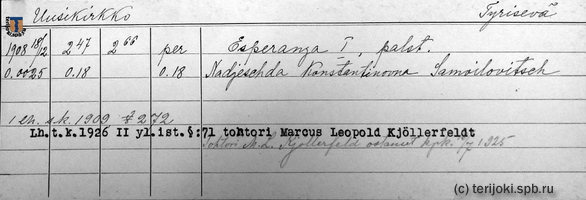 Uusikirkko Tyrisevä
1908 18/12 2 47 2 66 per Esperanza I, palst.
0.0025 0.18 0.18 Nadjeschda Konstantinovna Samoilovitsch
1 eh. s.k. 1909 § 272
Lh.t.k.1926 II yl.ist.§:71 tohtori Marcus Leopold Kjöllerfeldt
Tohtori M.L. Kjöllerfeld ostanut kpk. 7/7 1925
(c) terijoki.spb.ru